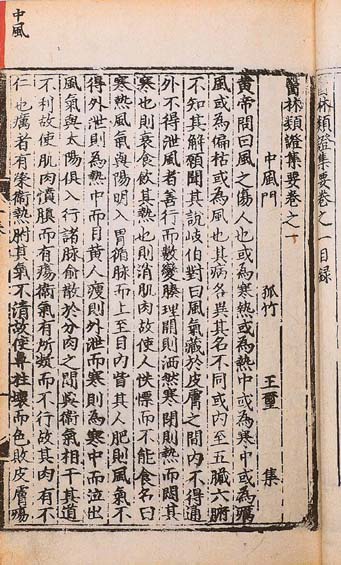 林類證集要卷之一目録
醫林類證集要卷之一
中風門 孤竹 王璽 集
黃帝問曰風之傷人也或為寒熱或為熱中或為寒中或為癘
風或為偏枯或為風也其病各異其名不同或內至五臟六腑
不知其解願聞其說岐伯對曰風氣藏於皮膚之間內不得通
外不得泄風者善行而數變腠理開則洒然寒閉則熱而悶其
寒也則衰食飲其熱也則消肌肉故使人怢慄而不能食名曰
寒熱風氣與陽明入胃循脉而上至目內眥其人肥則風氣不
得外泄則為熱中而目黃人瘦則外泄而寒則為寒中而泣出
風氣與太陽俱入行諸脉俞散於分肉之間與衛氣相干其道
不利故使肌肉憤䐜而有瘍衛氣有所凝而不行故其肉有不
仁也癘者有榮衛熱胕其氣不清故使鼻柱壞而色敗皮膚瘍
中風